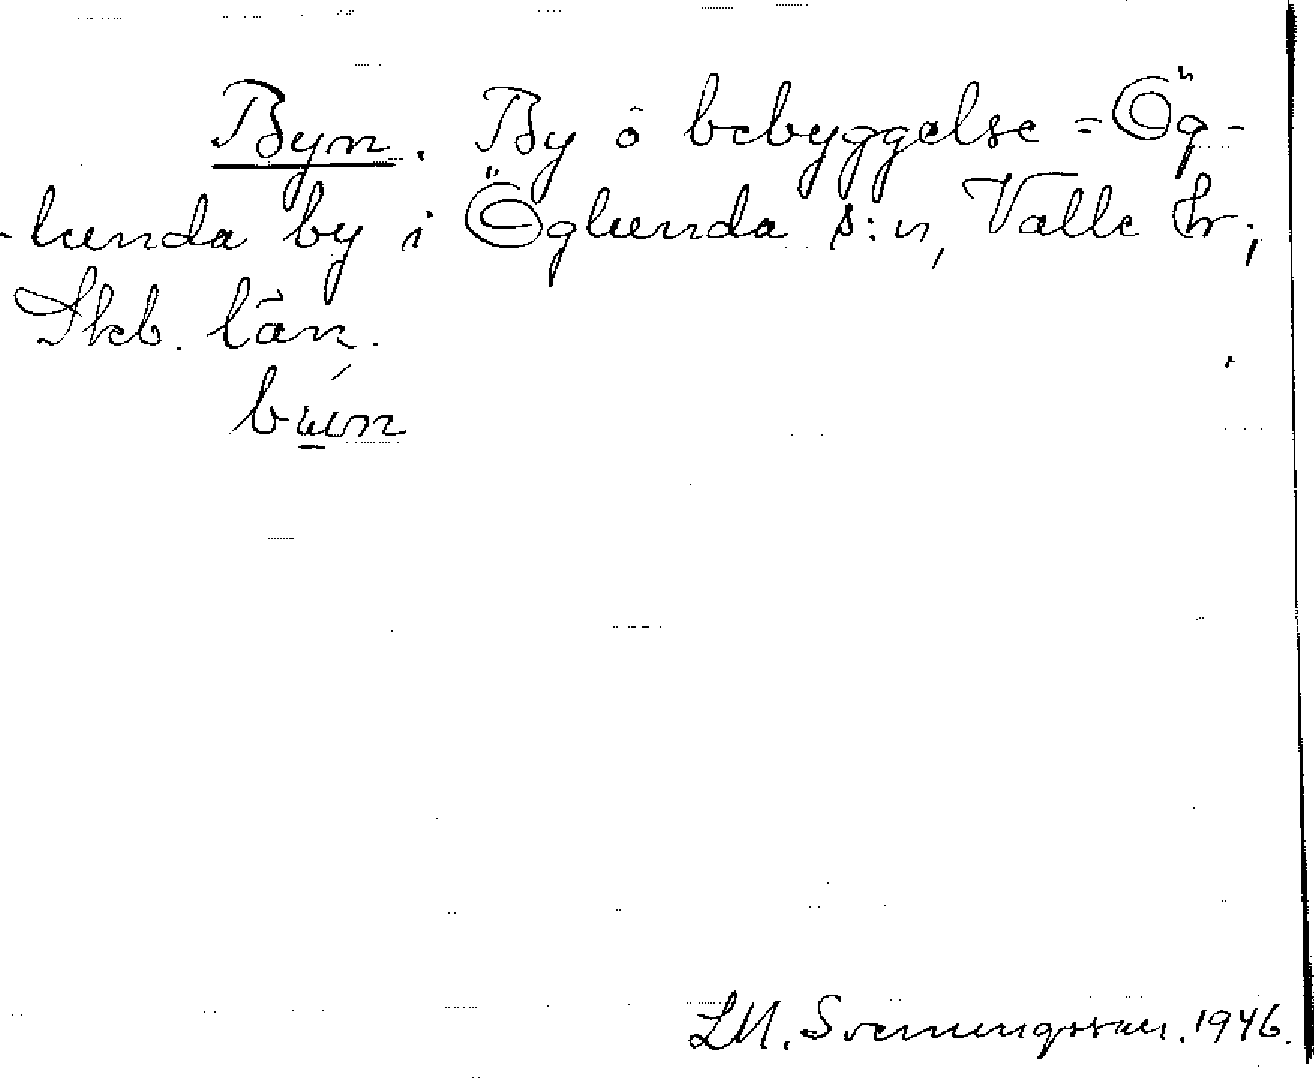 Byn. By o bebyggelse = Ög-
-lunda by i Öglunda s:n, Valle hr;
Skb. län.
LM. Svenungsson. 1946.